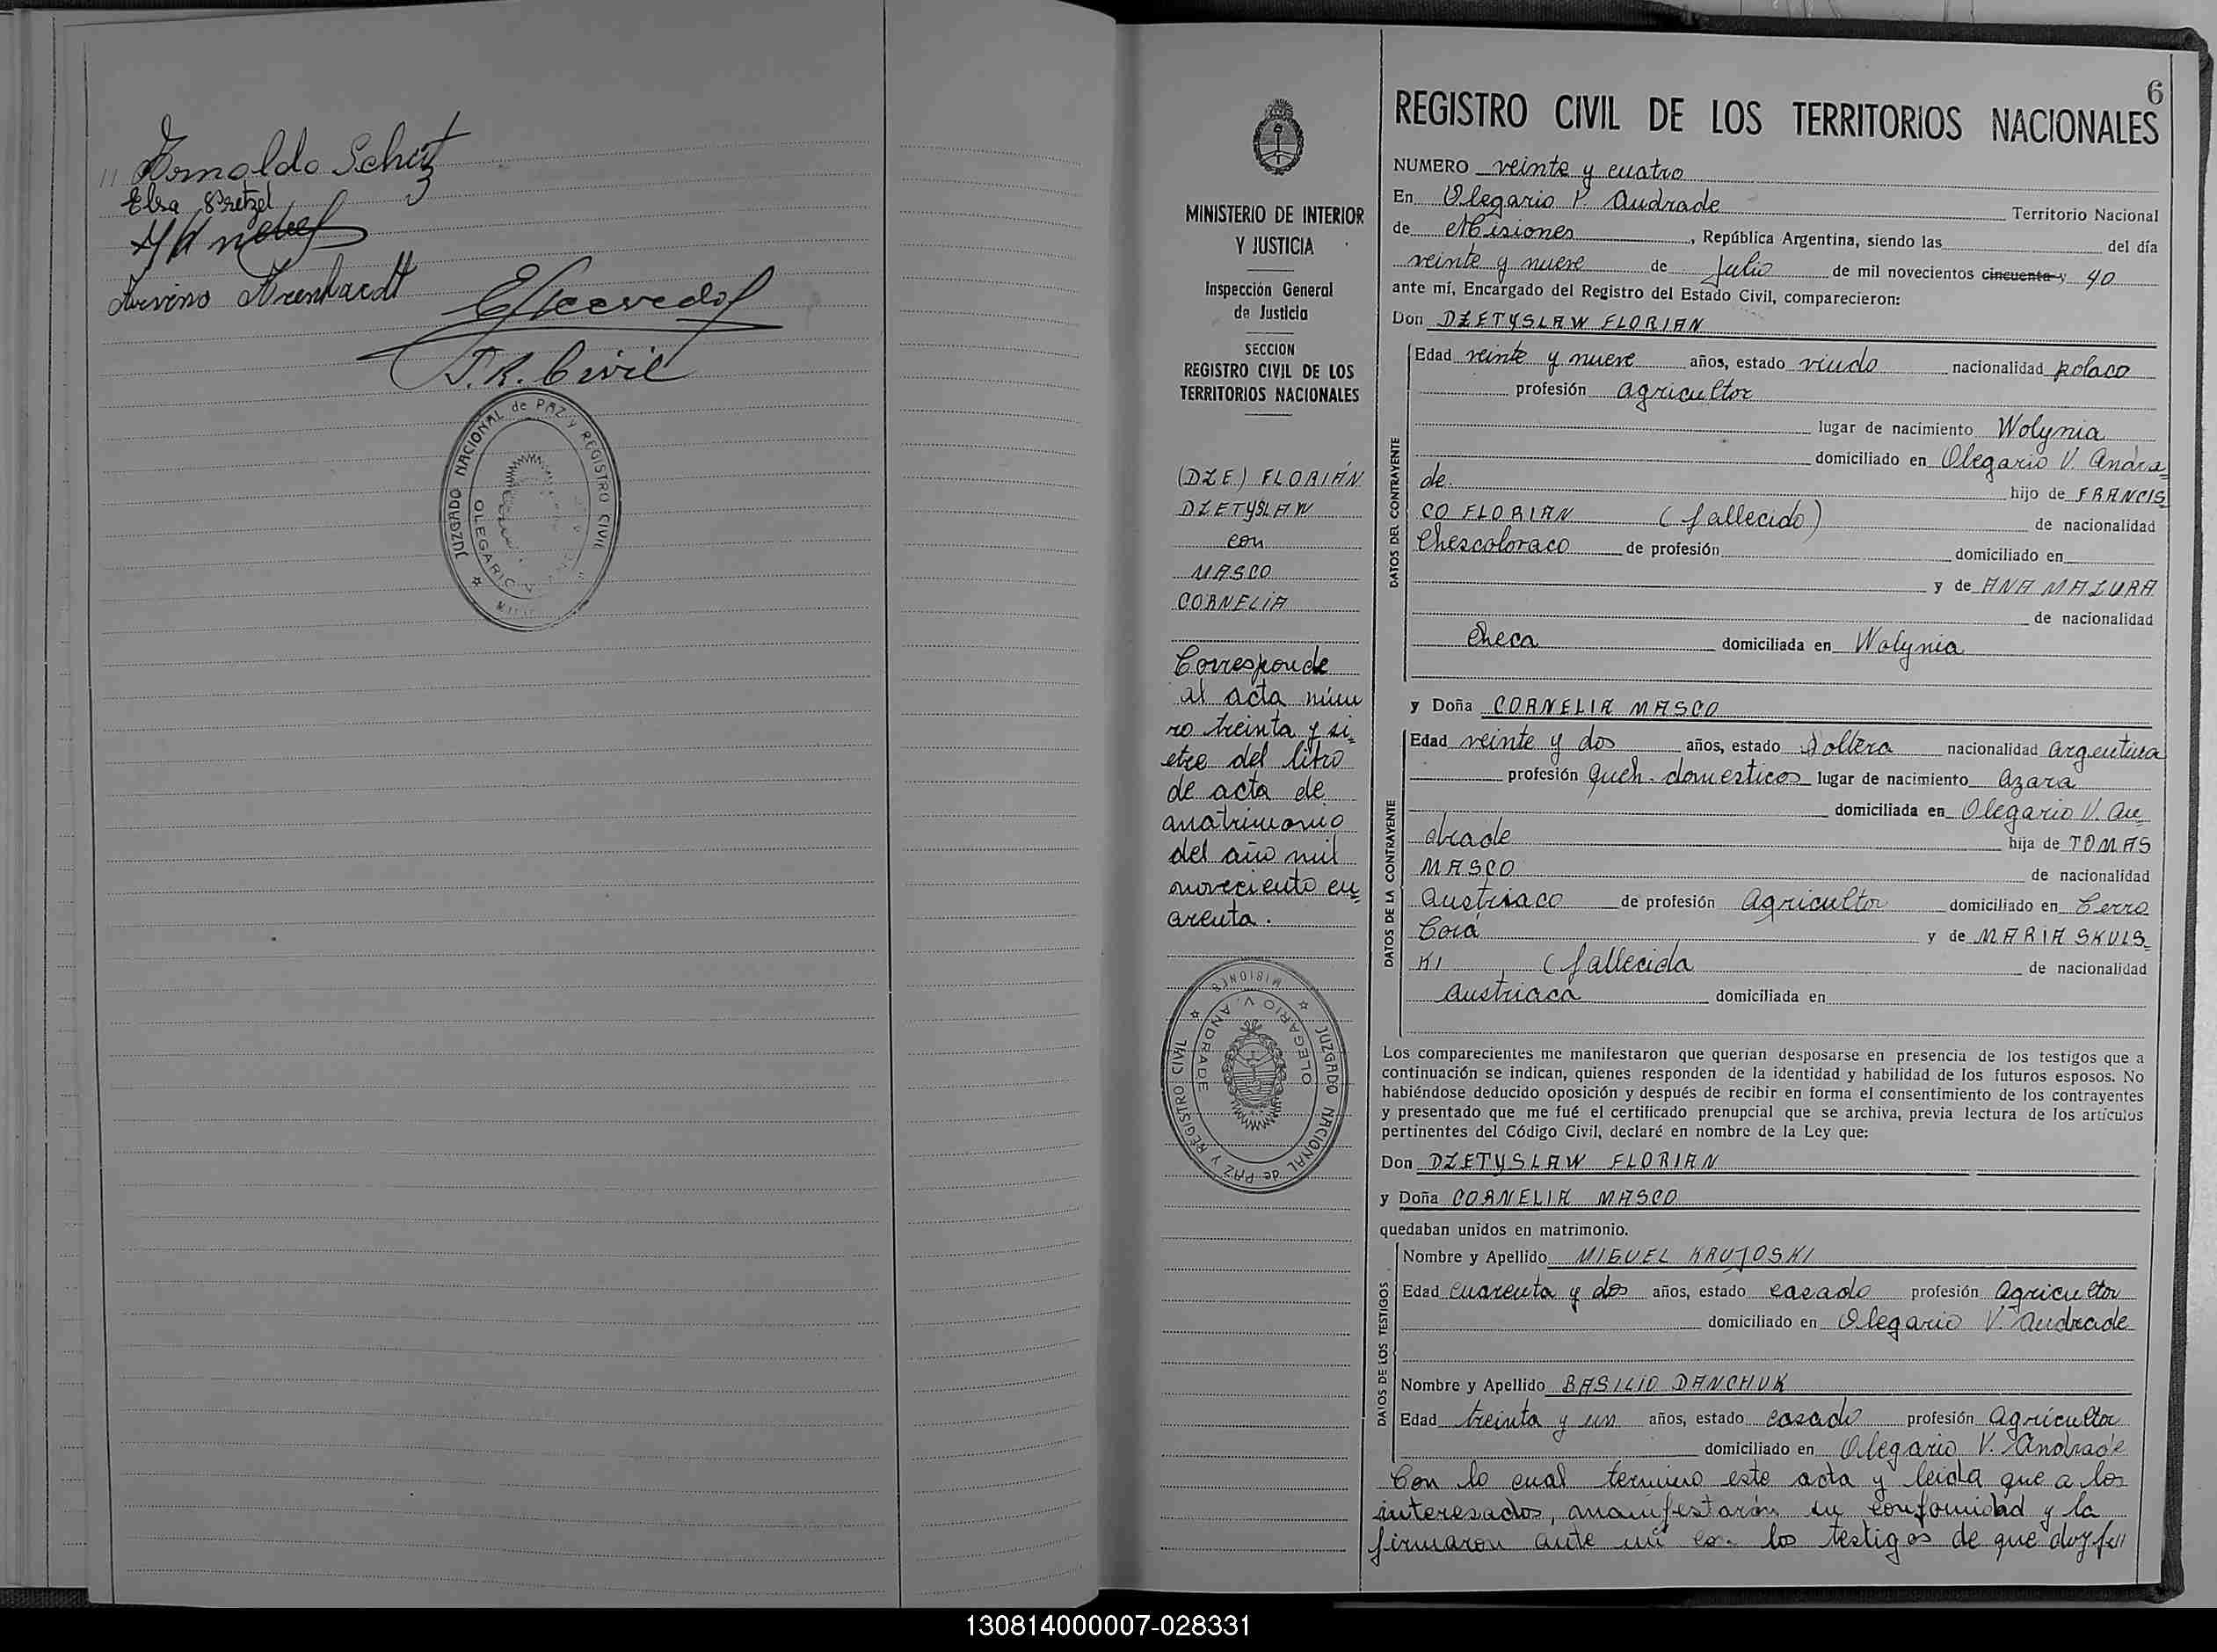 " Arnoldo Schutz
Elsa Pretzel
Arvino Arenhardt
EAcevedo
J.R. Civil
JUZGADO NACIONAL de PAZ y REGISTRO CIVIL
OLEGARIO V.
MINISTERIO DE INTERIOR
Y JUSTICIA
Inspección General
de Justicia
SECCION
REGISTRO CIVIL DE LOS
TERRITORIOS NACIONALES
(DZE) FLORIÁN
DZETYSLAW
con
MASCO
CORNELIA
Corresponde
al acta núme
ro treinta y si=
ete del libro
de acta de
matrimonio
del año mil
noveciento cu=
arenta.
JUZGADO NACIONAL de PAZ Y REGISTRO CIVIL
MISIONES
OLEGARIO V. ANDRADE
6
REGISTRO CIVIL DE LOS TERRITORIOS NACIONALES
NUMERO veinte y cuatro
En Olegario V. Andrade Territorio Nacional
de Misiones, República Argentina, siendo las del día
veinte y nueve de Julio de mil novecientos cincuenta y 40
ante mí, Encargado del Registro del Estado Civil, comparecieron:
Don DZETYSLAW FLORIAN
DATOS DEL CONTRAYENTE
Edad veinte y nueve años, estado viudo nacionalidad polaco
profesión agricultor
lugar de nacimiento Wolynia
domiciliado en Olegario V. Andra=
de hijo de FRANCIS
CO FLORIAN (fallecido) de nacionalidad
Checoloraco de profesión domiciliado en
y de ANA MAZURA
de nacionalidad
Checa domiciliada en Wolynia
y Doña CORNELIA MASCO
DATOS DE LA CONTRAYENTE
Edad veinte y dos años, estado soltera nacionalidad argentina
profesión queh. domesticos lugar de nacimiento Azara
domiciliada en Olegario V. An=
drade hija de TOMAS
MASCO de nacionalidad
austriaco de profesión Agricultor domiciliado en Cerro
Corá y de MARIA SKULS=
KI (fallecida de nacionalidad
austriaca domiciliada en
Los comparecientes me manifestaron que querían desposarse en presencia de los testigos que a
continuación se indican, quienes responden de la identidad y habilidad de los futuros esposos. No
habiéndose deducido oposición y después de recibir en forma el consentimiento de los contrayentes
y presentado que me fué el certificado prenupcial que se archiva, previa lectura de los artículos
pertinentes del Código Civil, declaré en nombre de la Ley que:
Don DZETYSLAW FLORIAN
y Doña CORNELIA MASCO
quedaban unidos en matrimonio.
DATOS DE LOS TESTIGOS
Nombre y Apellido MIGUEL KRUJOSKI
Edad cuarenta y dos años, estado casado profesión Agricultor
domiciliado en Olegario V. Andrade
Nombre y Apellido BASILIO DANCHUK
Edad treinta y un años, estado casado profesión Agricultor
domiciliado en Olegario V. Andrade
Con lo cual termino este acta y leida que a los
interesados, manifestarón su conformidad y la
firmaron ante mi con los testigos de que doy fe//
130814000007-028331